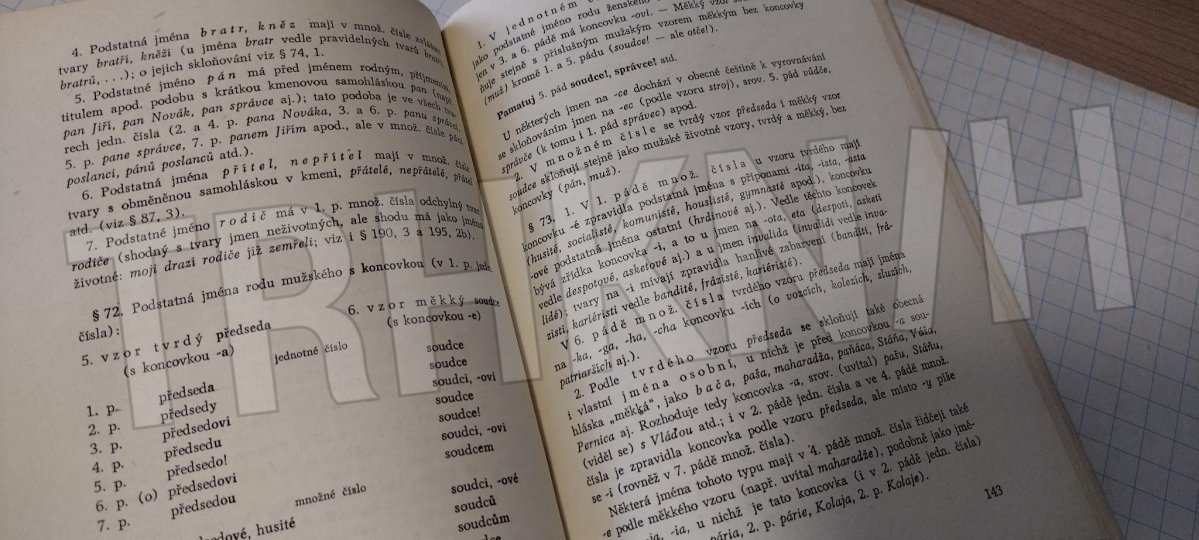 4. Podstatná jména bratr, kněz mají v množ. čísle zvláštní
tvary bratři, kněží (u jména bratr vedle pravidelných tvarů bratři,
bratrů, ...); o jejich skloňování viz § 74, 1.
5. Podstatné jméno pán má před jménem rodným, příjmením,
titulem apod. podobu s krátkou kmenovou samohláskou pan (např.
pan Jiří, pan Novák, pan správce aj.); tato podoba je ve všech tva-
rech jedn. čísla (2. a 4. p. pana Nováka, 3. a 6. p. panu správci,
5. p. pane správce, 7. p. panem Jiřím apod., ale v množ. čísle páni
poslanci, pánů poslanců atd.).
6. Podstatná jména přítel, nepřítel mají v množ. čísle
tvary s obměněnou samohláskou v kmeni, přátelé, nepřátelé, přátel
atd. (viz § 87, 3).
7. Podstatné jméno rodič má v 1. p. množ. čísla odchylný tvar
rodiče (shodný s tvary jmen neživotných, ale shodu má jako jméno
životné: moji drazí rodiče již zemřeli; viz i § 190, 3 a 195, 2b).
§ 72. Podstatná jména rodu mužského s koncovkou (v 1. p. jedn.
čísla):
5. vzor tvrdý předseda 6. vzor měkký soudce
(s koncovkou -a) (s koncovkou -e)
jednotné číslo
1. p. předseda soudce
2. p. předsedy soudce
3. p. předsedovi soudci, -ovi
4. p. předsedu soudce
5. p. předsedo! soudce!
6. p. (o) předsedovi soudci, -ovi
7. p. předsedou soudcem
množné číslo
husité soudci, -ové
soudců
soudcům
soudce
1. V jednotném
jako podstatné jméno rodu ženského
jen v 3. a 6. pádě má koncovku -ovi. — Měkký vzor
ňuje stejně s příslušným mužským vzorem měkkým bez koncovky
(muž) kromě 1. a 5. pádu (soudce! — ale otče!).
Pamatuj 5. pád soudce!, správce! atd.
U některých jmen na -ce dochází v obecné češtině k vyrovnávání
se skloňováním jmen na -ec (podle vzoru stroj), srov. 5. pád vůdče,
správče (k tomu i 1. pád správec) apod.
2. V množném čísle se tvrdý vzor předseda i měkký vzor
soudce skloňují stejně jako mužské životné vzory, tvrdý a měkký, bez
koncovky (pán, muž).
§ 73. 1. V 1. pádě množ. čísla u vzoru tvrdého mají
koncovku -é zpravidla podstatná jména s příponami -ita, -ista, -asta
(husité, socialisté, komunisté, houslisté, gymnasté apod.), koncovku
-ové podstatná jména ostatní (hrdinové aj.). Vedle těchto koncovek
bývá zřídka koncovka -i, a to u jmen na -ota, -eta (despoti, asketi
vedle despotové, asketové aj.) a u jmen invalida (invalidi vedle inva-
lidé); tvary na -i mívají zpravidla hanlivé zabarvení (banditi, frá-
zisti, kariéristi vedle bandité, frázisté, kariéristé).
V 6. pádě množ. čísla tvrdého vzoru předseda mají jména
na -ka, -ga, -ha, -cha koncovku -ích (o vozcích, kolezích, sluzích,
patriarších aj.).
2. Podle tvrdého vzoru předseda se skloňují také obecná
i vlastní jména osobní, u nichž je před koncovkou -a sou-
hláska „měkká", jako bača, paša, maharadža, paňáca, Stáňa, Váša,
Pernica aj. Rozhoduje tedy koncovka -a, srov. (uvítal) pašu, Stáňu,
(viděl se) s Vláďou atd.; i v 2. pádě jedn. čísla a ve 4. pádě množ.
čísla je zpravidla koncovka podle vzoru předseda, ale místo -y píše
se -i (rovněž v 7. pádě množ. čísla).
Některá jména tohoto typu mají v 4. pádě množ. čísla řidčeji také
-e podle měkkého vzoru (např. uvítal maharadže), podobně jako jmé-
-ia, u nichž je tato koncovka (i v 2. pádě jedn. čísla)
2. p. párie, Kolaja, 2. p. Kolaje).
143
TRHKNIH